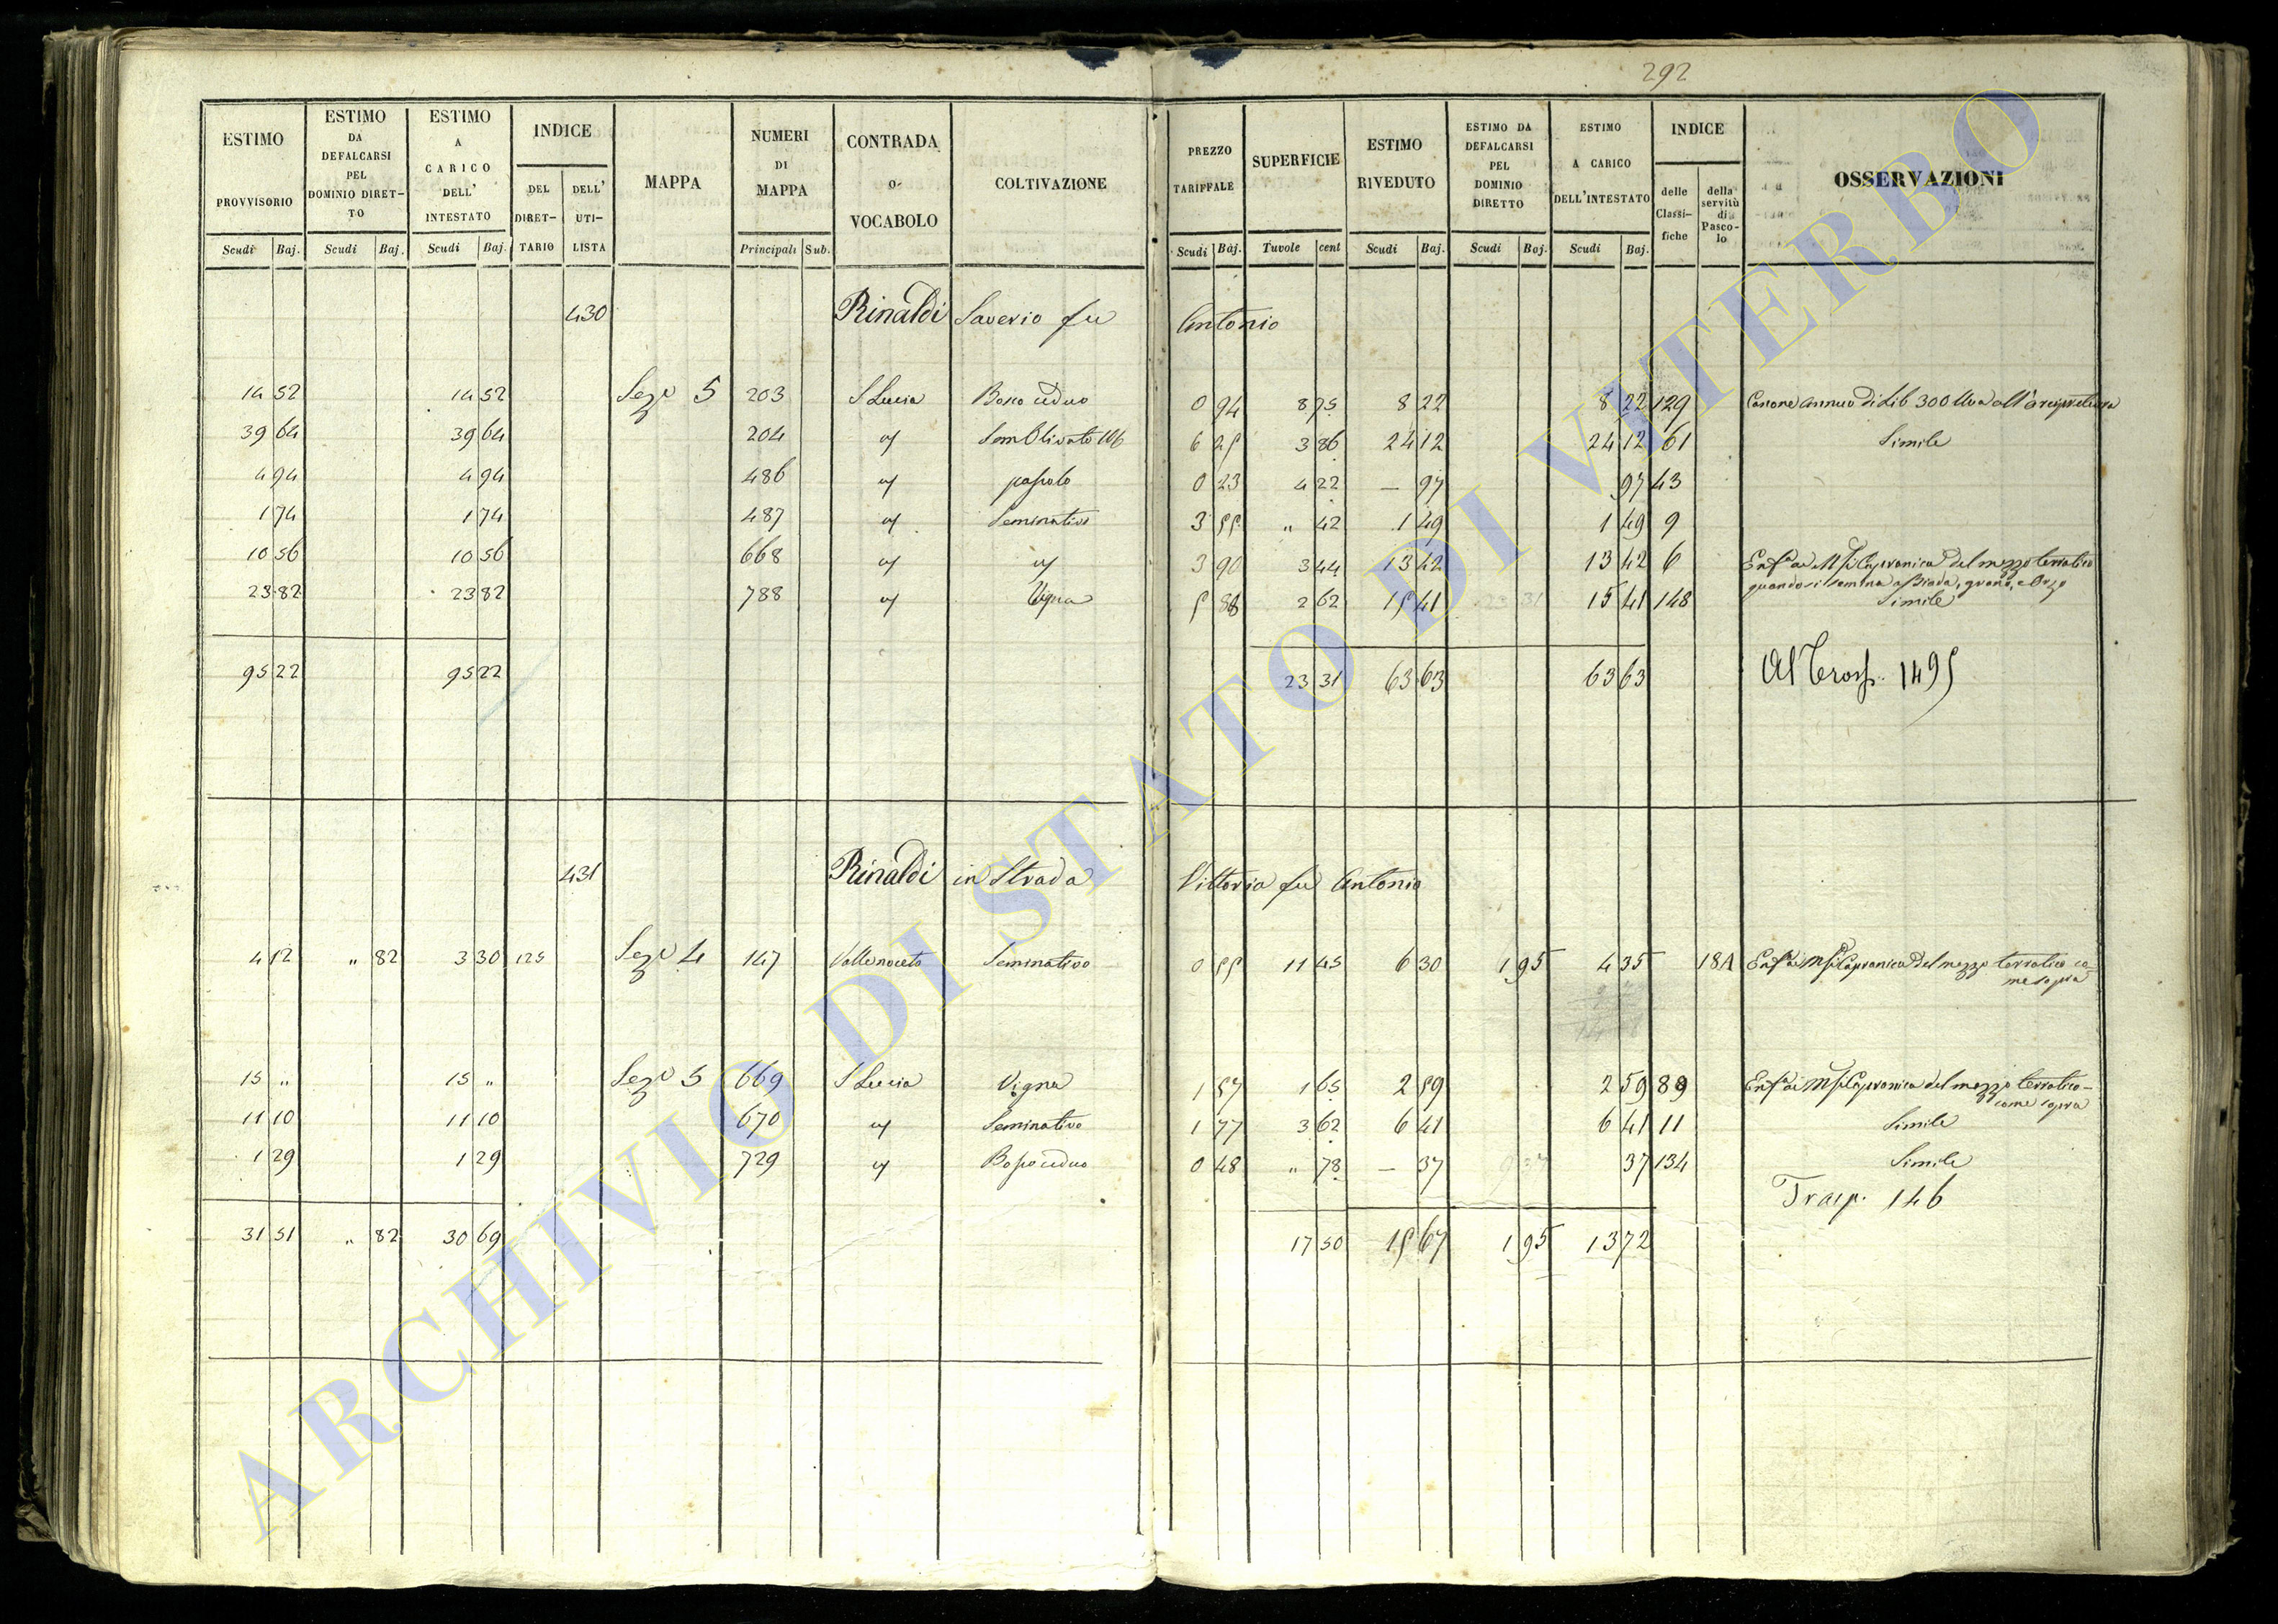 292
ESTIMO PROVVISORIO Scudi Baj. | ESTIMO DA DEFALCARSI PEL DOMINIO DIRET-TO Scudi Baj. | ESTIMO A CARICO DELL' INTESTATO Scudi Baj. | INDICE DEL DIRET-TARIO | DELL' UTI-LISTA | MAPPA | NUMERI DI MAPPA Principali Sub. | CONTRADA O VOCABOLO | COLTIVAZIONE | PREZZO TARIFFALE Scudi Baj. | SUPERFICIE Tavole cent | ESTIMO RIVEDUTO Scudi Baj. | ESTIMO DA DEFALCARSI PEL DOMINIO DIRETTO Scudi Baj. | ESTIMO A CARICO DELL'INTESTATO Scudi Baj. | INDICE delle Classi-fiche | della servitù di Pasco-lo | OSSERVAZIONI
430 Rinaldi Saverio fu Antonio
14 52 14 52 Sez.e 5 203 S Lucia Bosco ceduo 0 94 8 75 8 22 8 22 129 Canone annuo di Lib 300 Uva all'arcipretura
39 64 39 64 204 " Sem Olivato 6 25 3 86 24 12 24 12 61 Simile
4 94 4 94 486 " pascolo 0 23 4 22 — 97 97 43
1 74 1 74 487 " Seminativo 3 55 " 42 1 49 1 49 9
10 56 10 56 668 " " 3 90 3 44 13 42 13 42 6 Enf.a ai Capranica del mezzo terratico
quando si semina a Biada, grano, e Orzo
23 82 23 82 788 " Vigna 5 88 2 62 15 41 15 41 148 Simile
95 22 95 22 23 31 63 63 63 63 Al Trasp. 1495
431 Rinaldi in Strada Vittoria fu Antonio
4 12 " 82 3 30 125 Sez.e 4 147 Valle noceto Seminativo 0 55 11 45 6 30 1 95 4 35 18A Enf.a ai Capranica del mezzo terratico co-
me sopra
15 " 15 " Sez.e 5 669 S Lucia Vigna 1 57 1 65 2 59 2 59 89 Enf.a ai Capranica del mezzo terratico-
come sopra
11 10 11 10 670 " Seminativo 1 77 3 62 6 41 6 41 11 Simile
1 29 1 29 729 " Bosco ceduo 0 48 " 78 — 37 37 134 Simile
Trasp. 146
31 51 " 82 30 69 17 50 15 67 1 95 13 72
ARCHIVIO DI STATO DI VITERBO